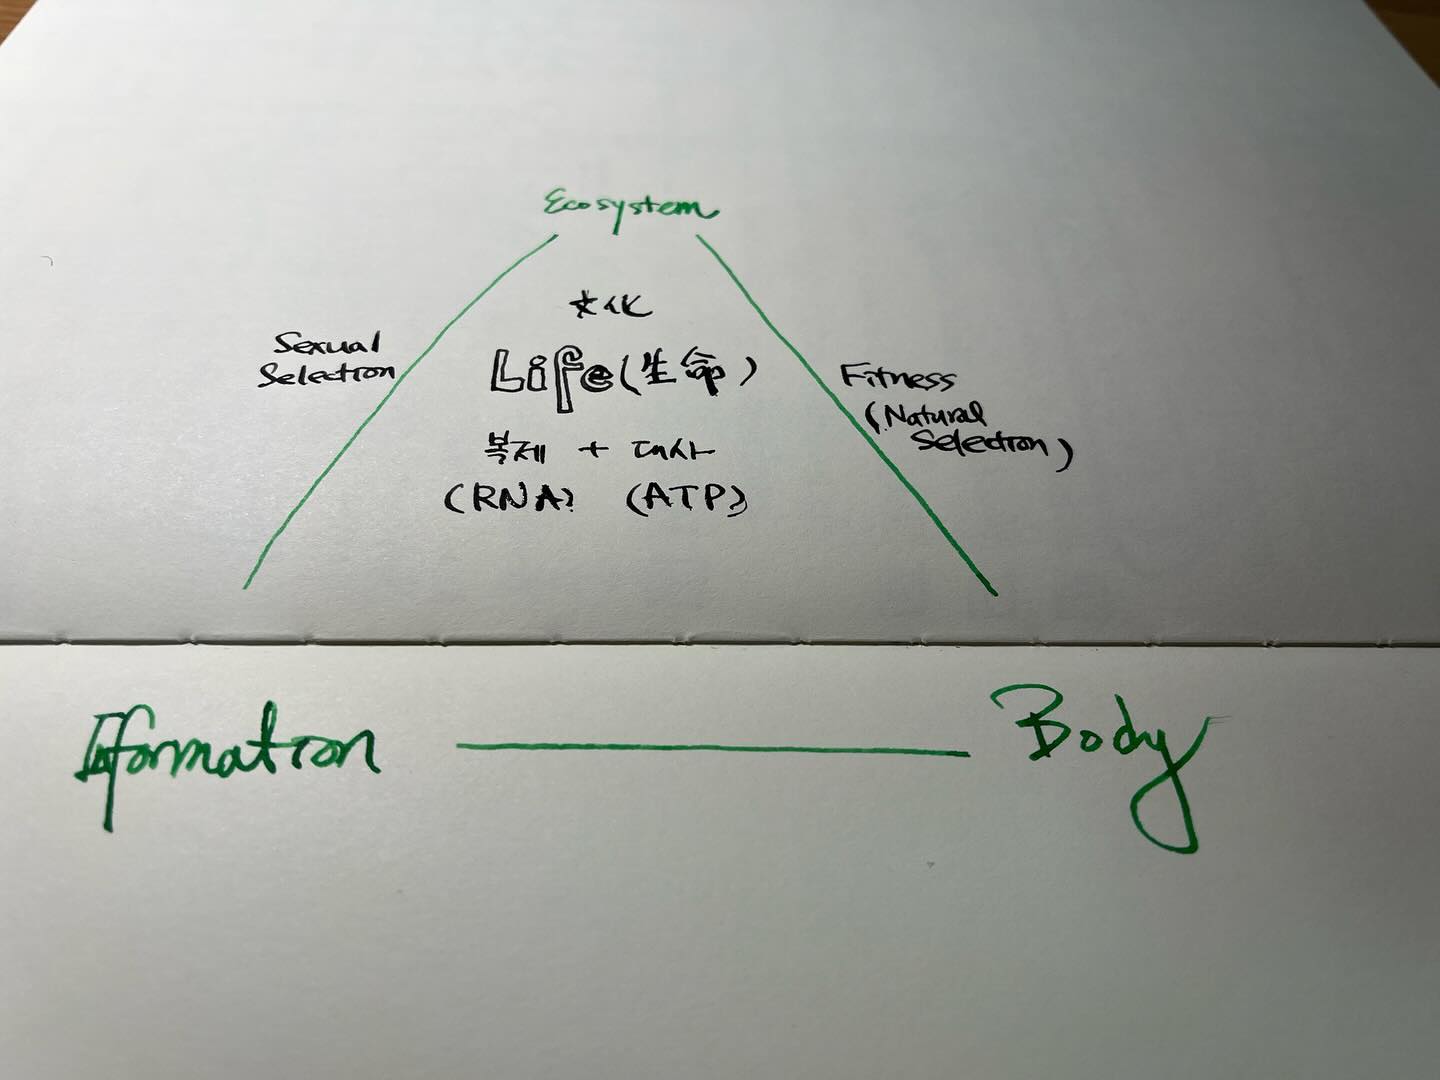 Ecosystem
文化
Sexual
Selection
Life (生命)
Fitness
(Natural
Selection)
복제 + 대사
(RNA) (ATP)
Information
Body